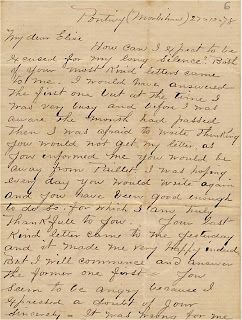 6
Pontivy (Morbihan) 27-12-78
My dear Elise
How can I expect to be
excused for my long silence? Both
of your most kind letters came
to me. I would have answered
the first one but at the time I
was very busy and before I was
aware the month had passed
Then I was afraid to write thinking
you would not get my letter as
you informed me you would be
away from I was hoping
every day you would write again
and you have been good enough
to do so for which I am truly
thankfull to you. Your last
kind letter came to me yesterday
and it made me very happy indeed
But I will commence and answer
the former one first. You
seem to be angry because I
expressed a doubt of your
sincerity. It was wrong for me